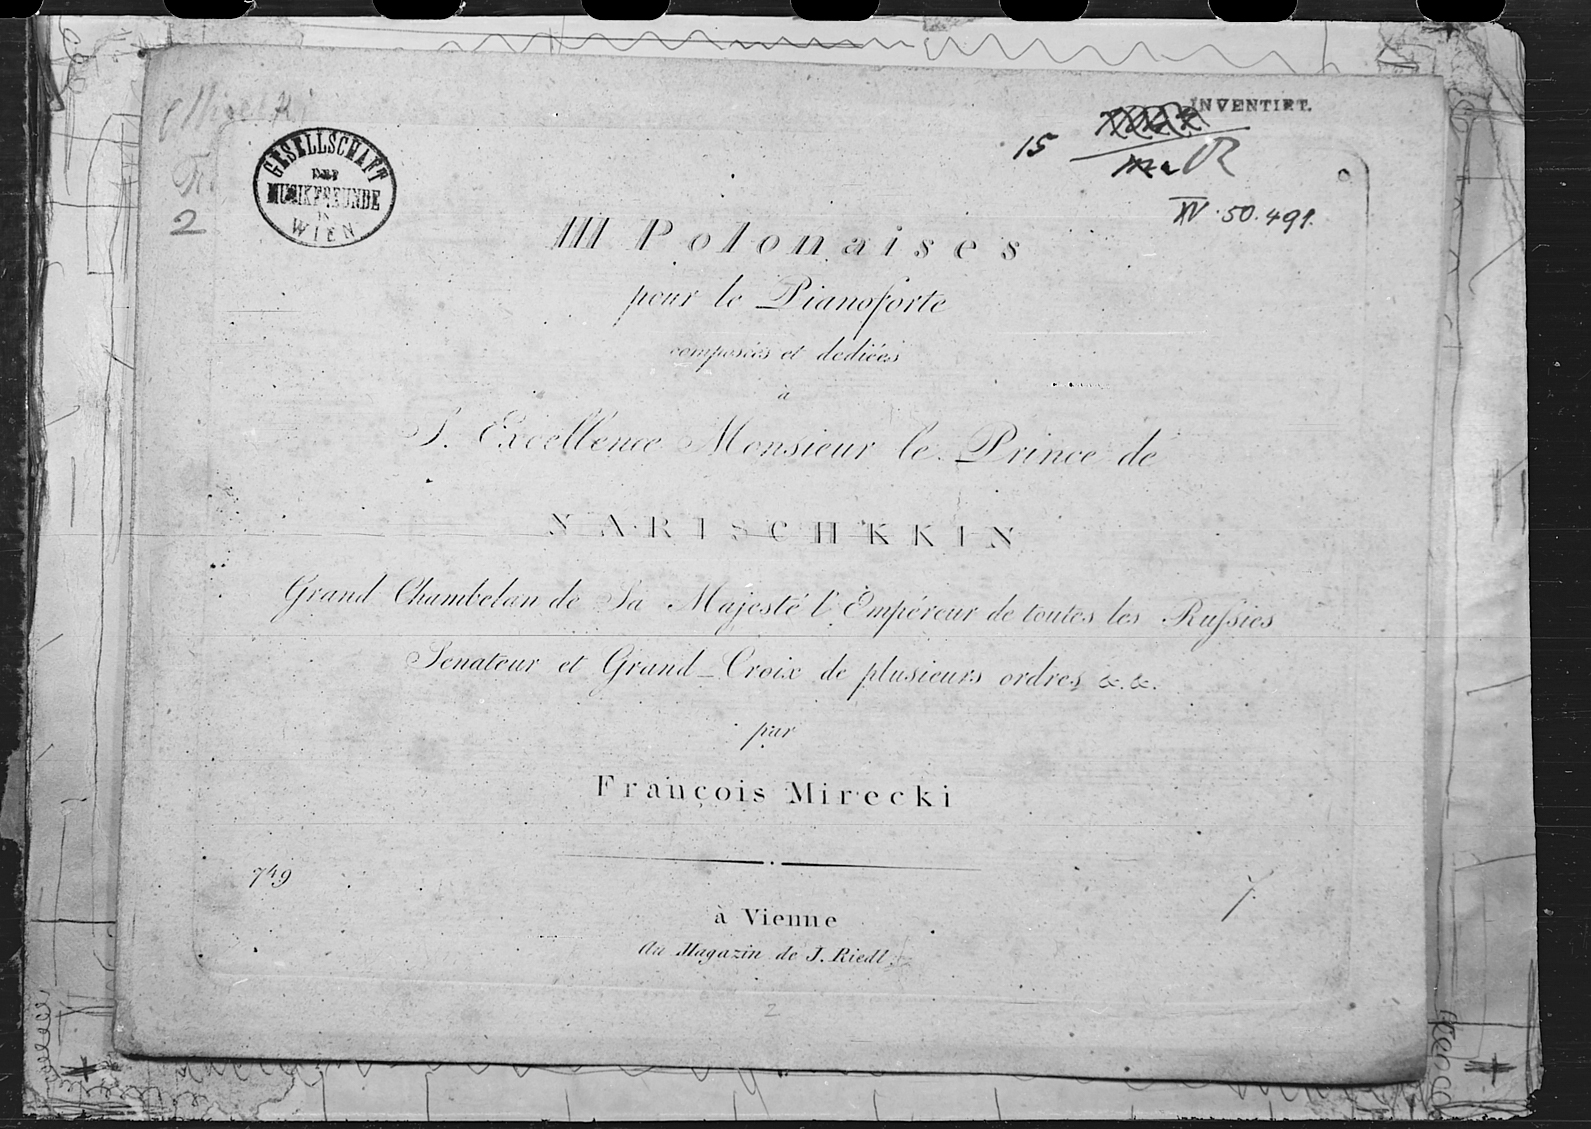 Mirecki
2
GESELLSCHAFT
DER
MUSIKFREUNDE
IN
WIEN
INVENTIRT.
15
XV. 50.491.
III Polonaises
pour le Pianoforte
composées et dediées
à
S. Excellence Monsieur le Prince de
NARISCHKKIN
Grand Chambelan de Sa Majesté l'Empéreur de toutes les Rufsies
Senateur et Grand-Croix de plusieurs ordres &. &.
par
François Mirecki
749
7.
à Vienne
Au Magazin de J. Riedl.
2